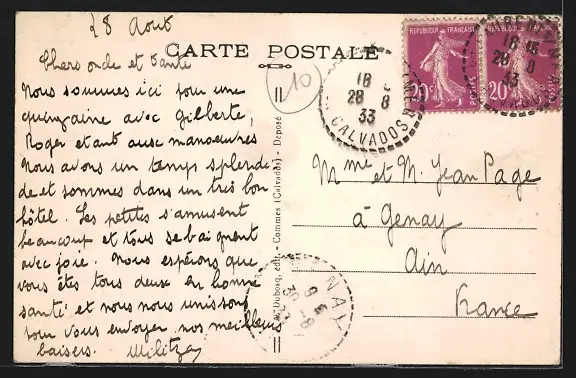 28 Août
CARTE POSTALE
Chers oncle et tante
Nous sommes ici pour une
quinzaine avec Gilberte,
Roger etant aux manoeuvres
Nous avons un temps splendi-
de et sommes dans un très bon
hôtel. Les petites s'amusent
beaucoup et tous se baignent
avec joie. Nous espérons que
vous êtes tous deux en bonne
santé et nous nous unissons
pour vous envoyer nos meilleurs
baisers. Militza
10
Dubosq, édit. - Commes (Calvados) - Deposé
REPUBLIQUE FRANÇAISE
20c
POSTES
REPUBLIQUE FRANÇAISE
20c
18
28 8
33
CALVADOS
18 15
28 8
33
CALVADOS
30 - 8
Mme et M. Jean Page
à Genay
Ain
France